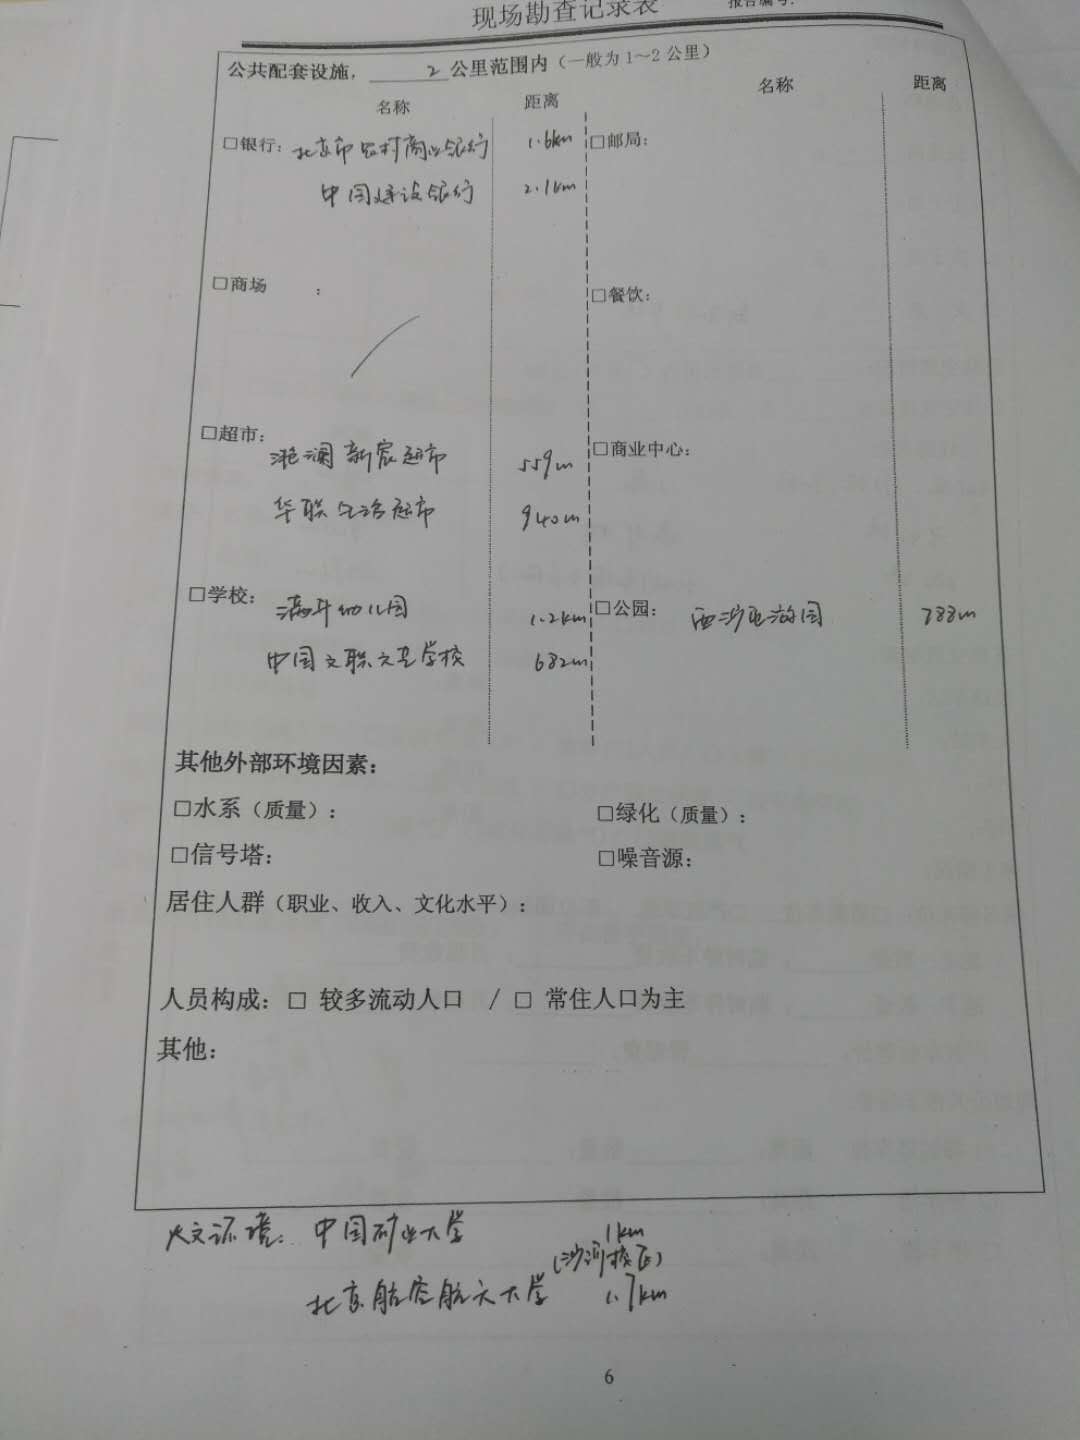 现场勘查记录表 报告编号:
公共配套设施，2公里范围内（一般为1～2公里）
名称 距离 名称 距离
□银行：北京市农村商业银行 1.6km □邮局：
中国建设银行 2.1km
□商场 ： □餐饮：
□超市： 新家超市 559m □商业中心：
华联生活超市 940m
□学校： 满井幼儿园 1.2km □公园： 西沙屯游园 788m
中国文联文艺学校 682m
其他外部环境因素：
□水系（质量）： □绿化（质量）：
□信号塔： □噪音源：
居住人群（职业、收入、文化水平）：
人员构成：□ 较多流动人口 / □ 常住人口为主
其他：
人文环境：中国矿业大学 1km
（沙河校区）
北京航空航天大学 1.7km
6